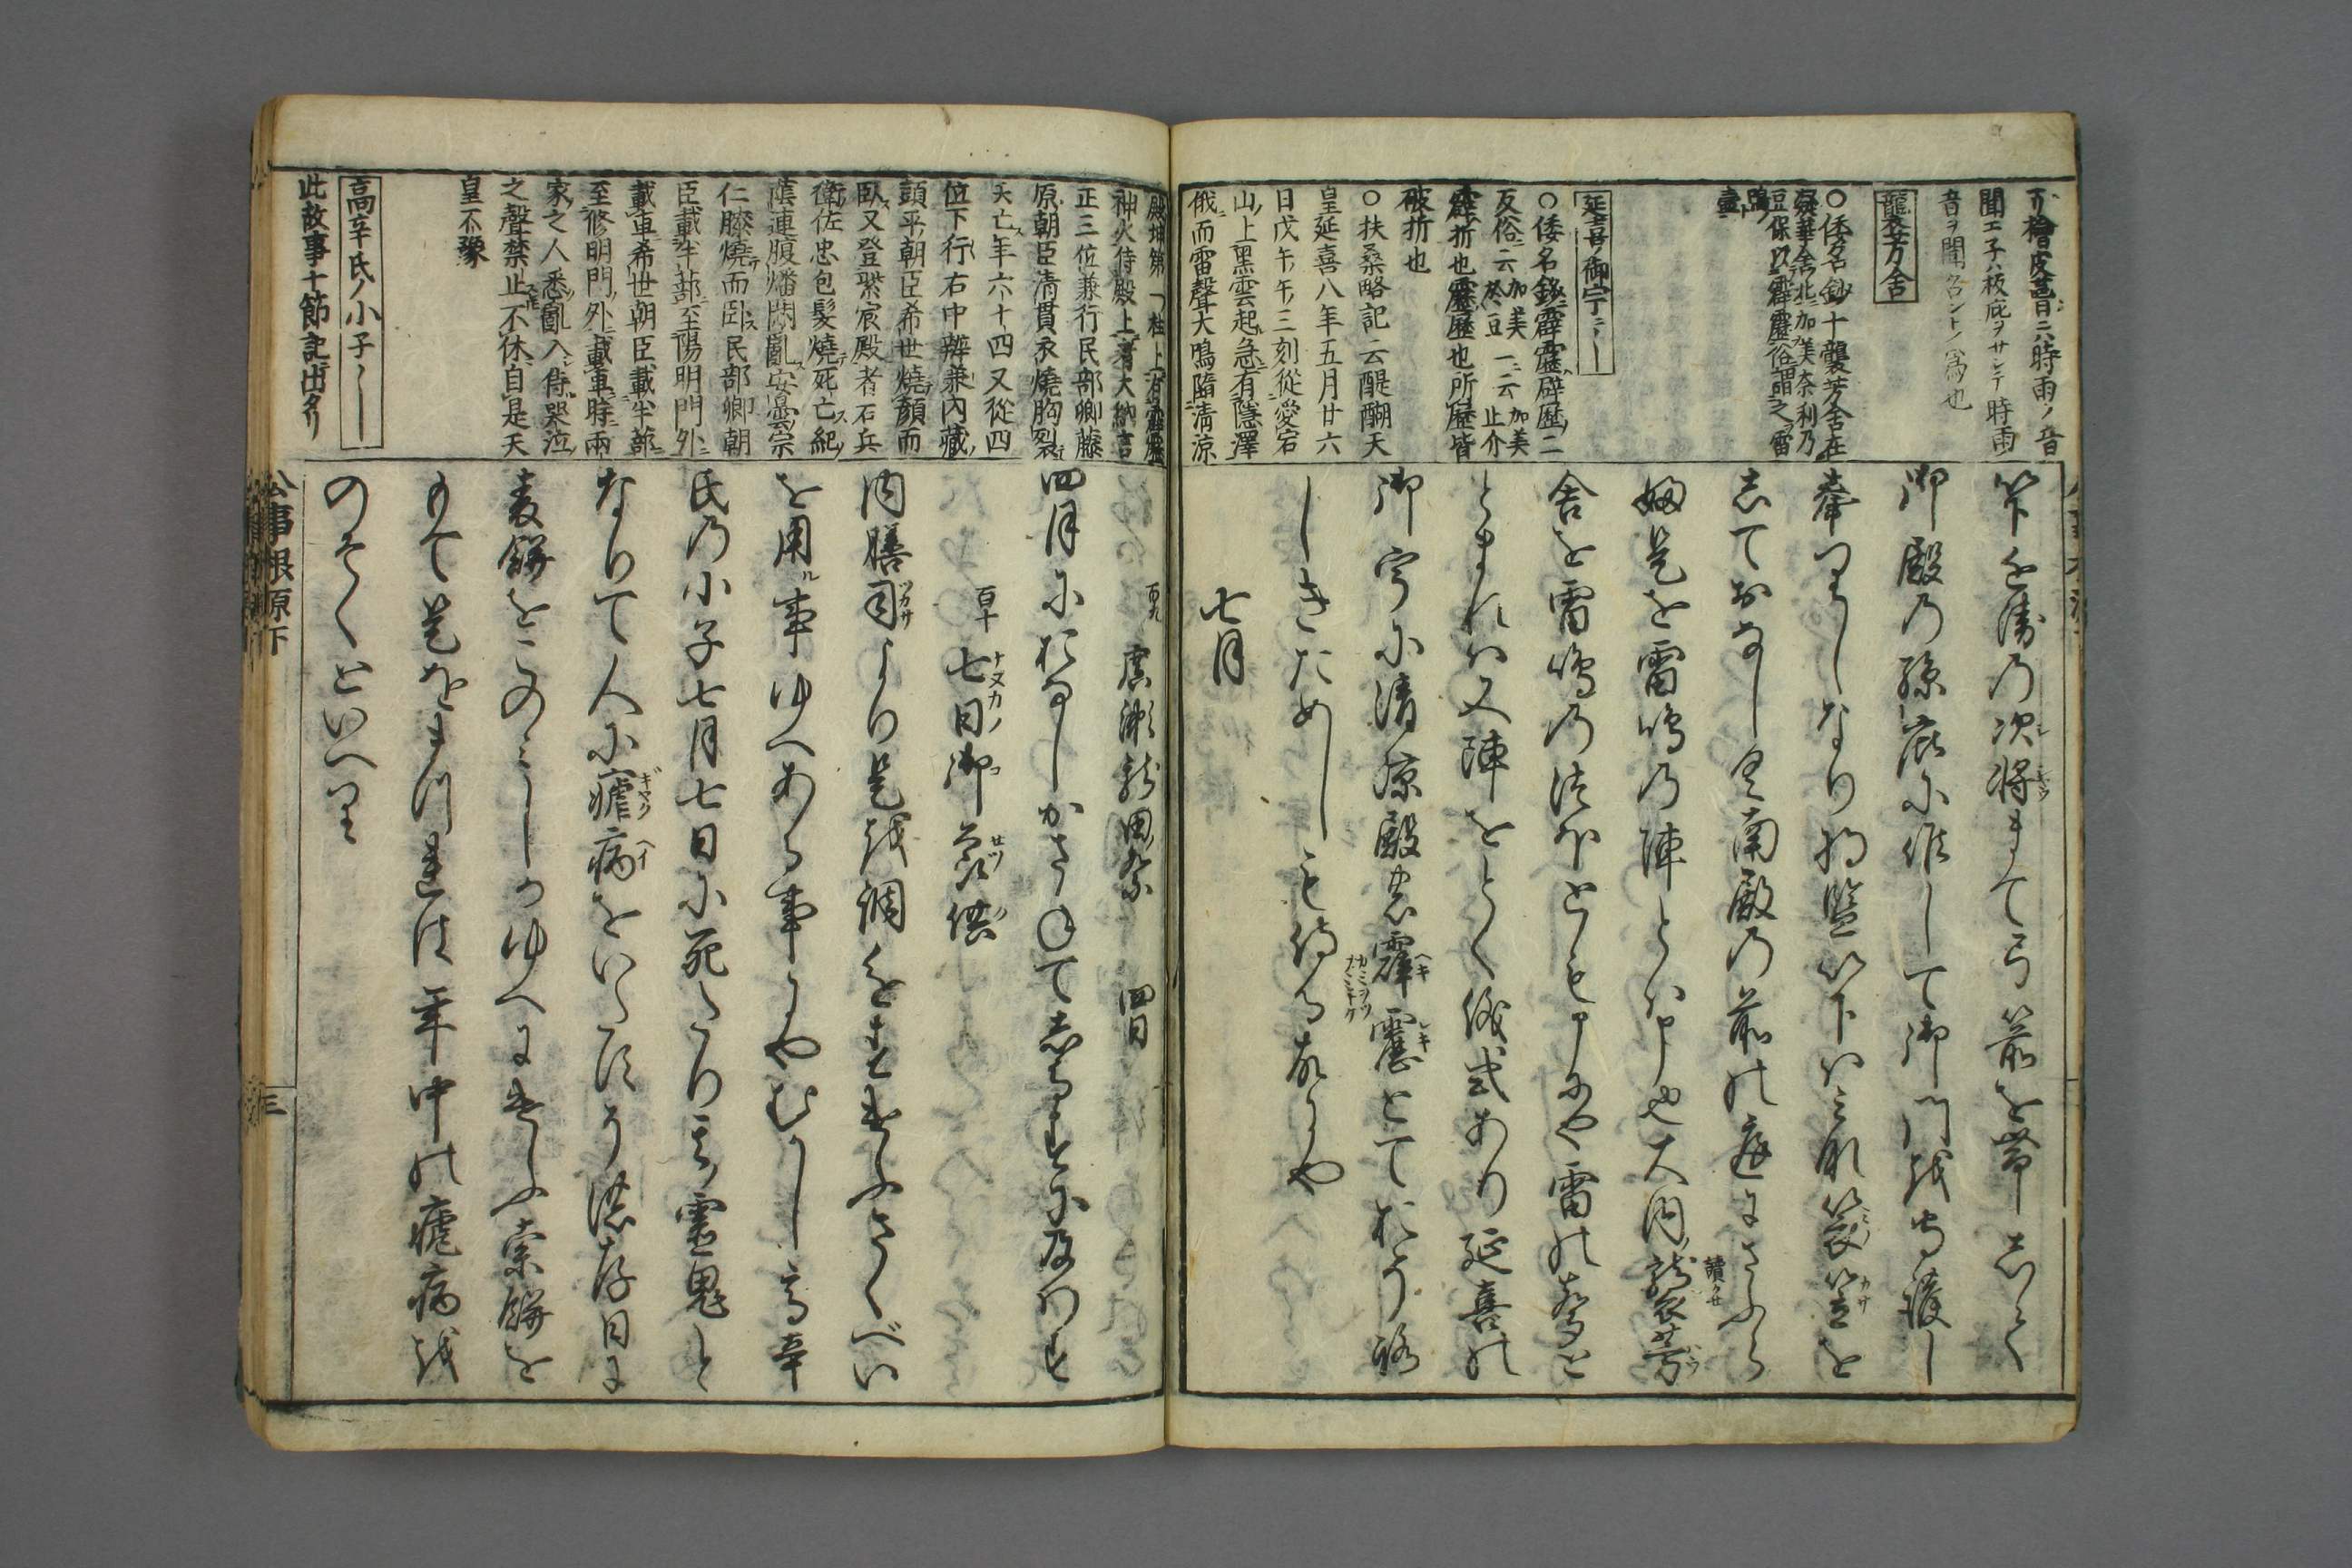 リ檜皮葺ニハ時雨ノ音
聞エ子ハ板庇ヲサシテ時雨
音ヲ聞召ントノ為也
襲芳舎
○倭名鈔ニ襲芳舎在
凝華舎北加美奈利乃
豆保以霹靂俗謂之雷
鳴壷
延喜ノ御宇ニ〱
○倭名鈔霹靂辟歴二
反俗云加美於豆一云加美止介
霹折也靂歴也所歴皆
破折也
○扶桑略記云醍醐天
皇延喜八年五月廿六
日戊午午三刻從愛宕
山上黒雲起急有隂澤
俄而雷聲大鳴隨清涼
竹を清の次将まて弓箭を帯して
御殿乃孫庇に候して御門を守護し
奉つりしなり将監以下ハミな簑笠を
きておなしく南殿乃前の庭にさふらふ
是を雷鳴乃陣とハ申也大内襲芳
舎を雷鳴乃つほとも申にや雷の聲と
とまれハ又陣をとく儀式あり延喜の
御宇に清涼殿に霹靂とておそろ
しきためしも侍るにや
七月
殿坤第一柱上有霹靂
神火侍殿上者大納言
正三位兼行民部卿藤
原朝臣清貫衣燒胸裂
夭亡年六十四又從四
位下行右中辨兼内藏
頭平朝臣希世燒顔而
臥又登紫宸殿者石兵
衛佐忠包髪燒死亡紀
蔭連腹燔悶亂安曇宗
仁膝燒而臥民部卿朝
臣載半蔀至陽明門外
載車希世朝臣載半蔀
至修明門外載車時兩
家之人悉亂入侍哭泣
之聲禁止不休自是天
皇不豫
高辛氏ノ小子〱
此故事十節記ニ出タリ
百九 廣瀬龍田祭 四日
四月におなしかさねてしるすに及はす
百十 七日御節供
内膳司より是を調進すけふさくべい
を用ル事ゆへある事にやむかし高辛
氏乃小子七月七日に死たり其霊鬼と
なりて人に瘧病をいたすその存日に
麦餅をこのみしかゆへにけふ索餅を
もて是をまつれは年中の瘧病を
のそくといへり
公事根源下
三